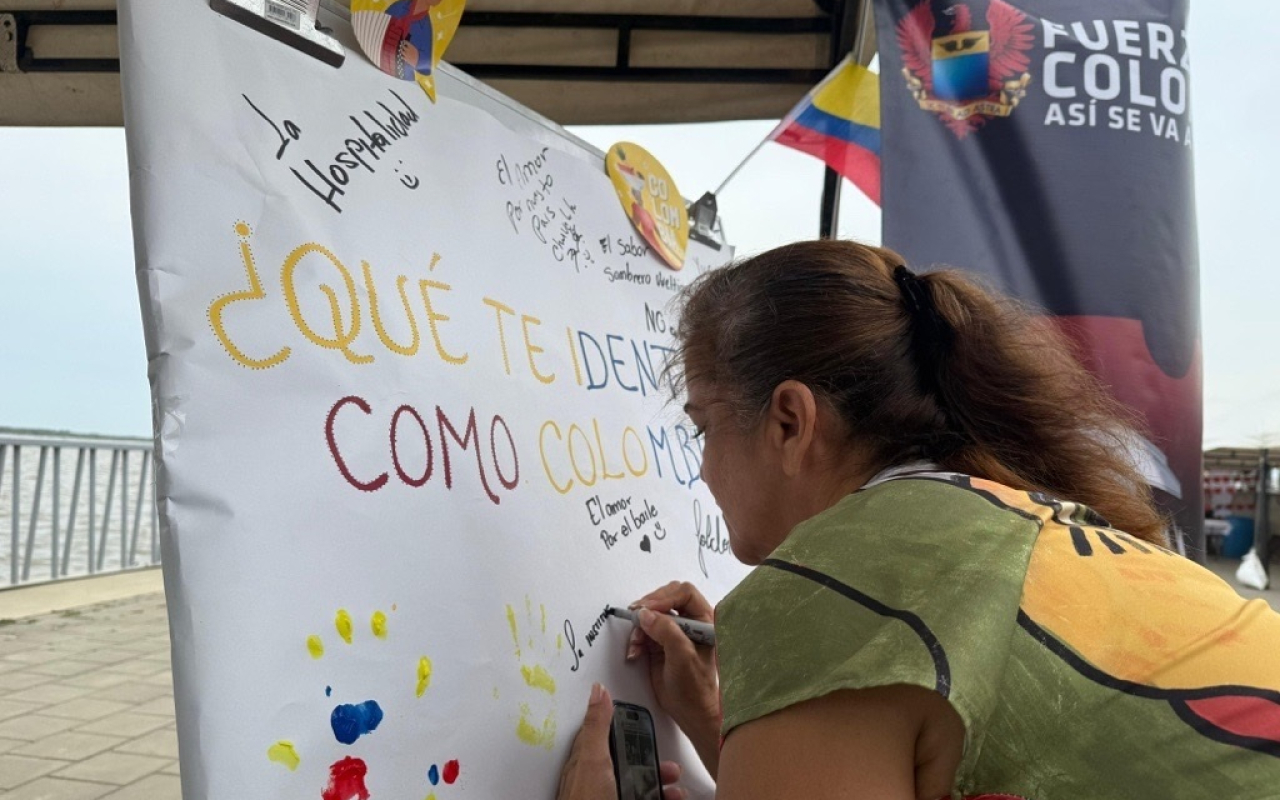 La
Hospitalidad
El Amor
Por nuestro
País
El Sabor
Sombrero
NO
¿QUÉ TE IDENT
COMO COLOMB
El amor
Por el baile
folclor
La
CO
LOM
FUERZ
COLO
ASÍ SE VA A